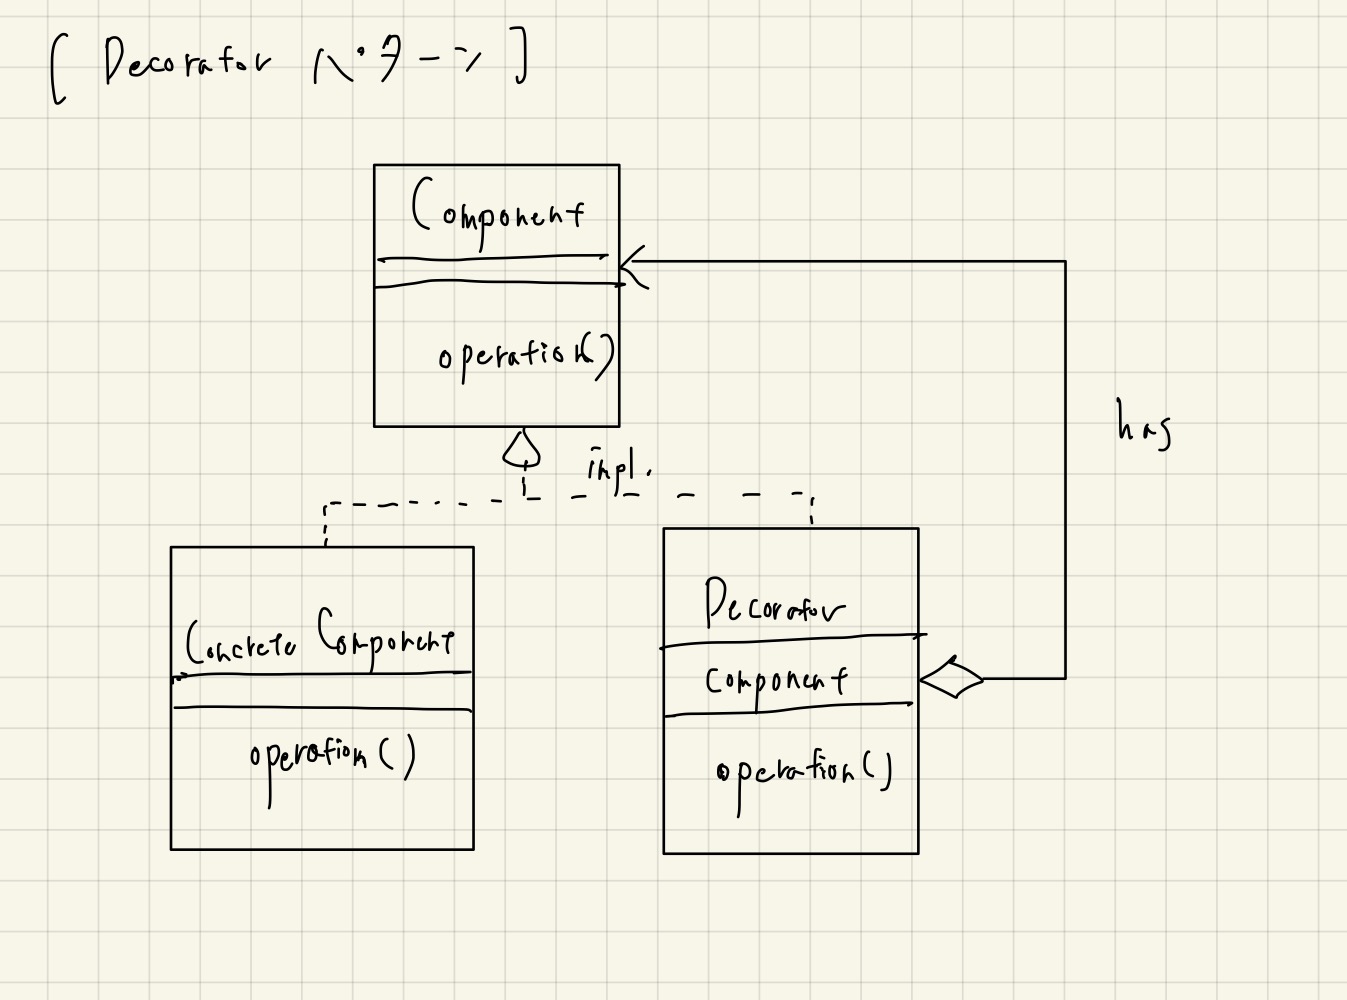 [ Decorator パターン ]
Component
operation()
impl.
has
Concrete Component
operation()
Decorator
component
operation()